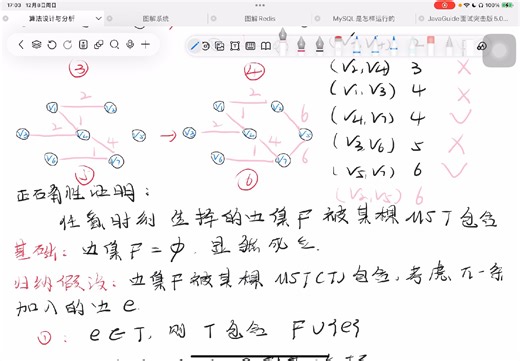 17:03 12月8日周日
100%
算法设计与分析
图解系统
图解 Redis
MySQL 是怎样运行的
JavaGuide 面试突击版 5.0...
③ ④
(V2,V4) 3 ×
(V1,V3) 4 ×
(V4,V7) 4 ✓
(V3,V6) 5 ×
(V5,V7) 6 ✓
(V2,V5) 6
2 2
2 1 4
1
2 2 6
2 1 4 6
1 6
⑤ ⑥
正确性证明:
任意时刻 选择的边集F 被某棵 MST包含
基础: 边集 F = φ. 显然成立
归纳假设: 边集F被某棵 MST(T) 包含, 考虑下一条
加入的边 e
①: e∈T, 则 T包含 F∪{e}